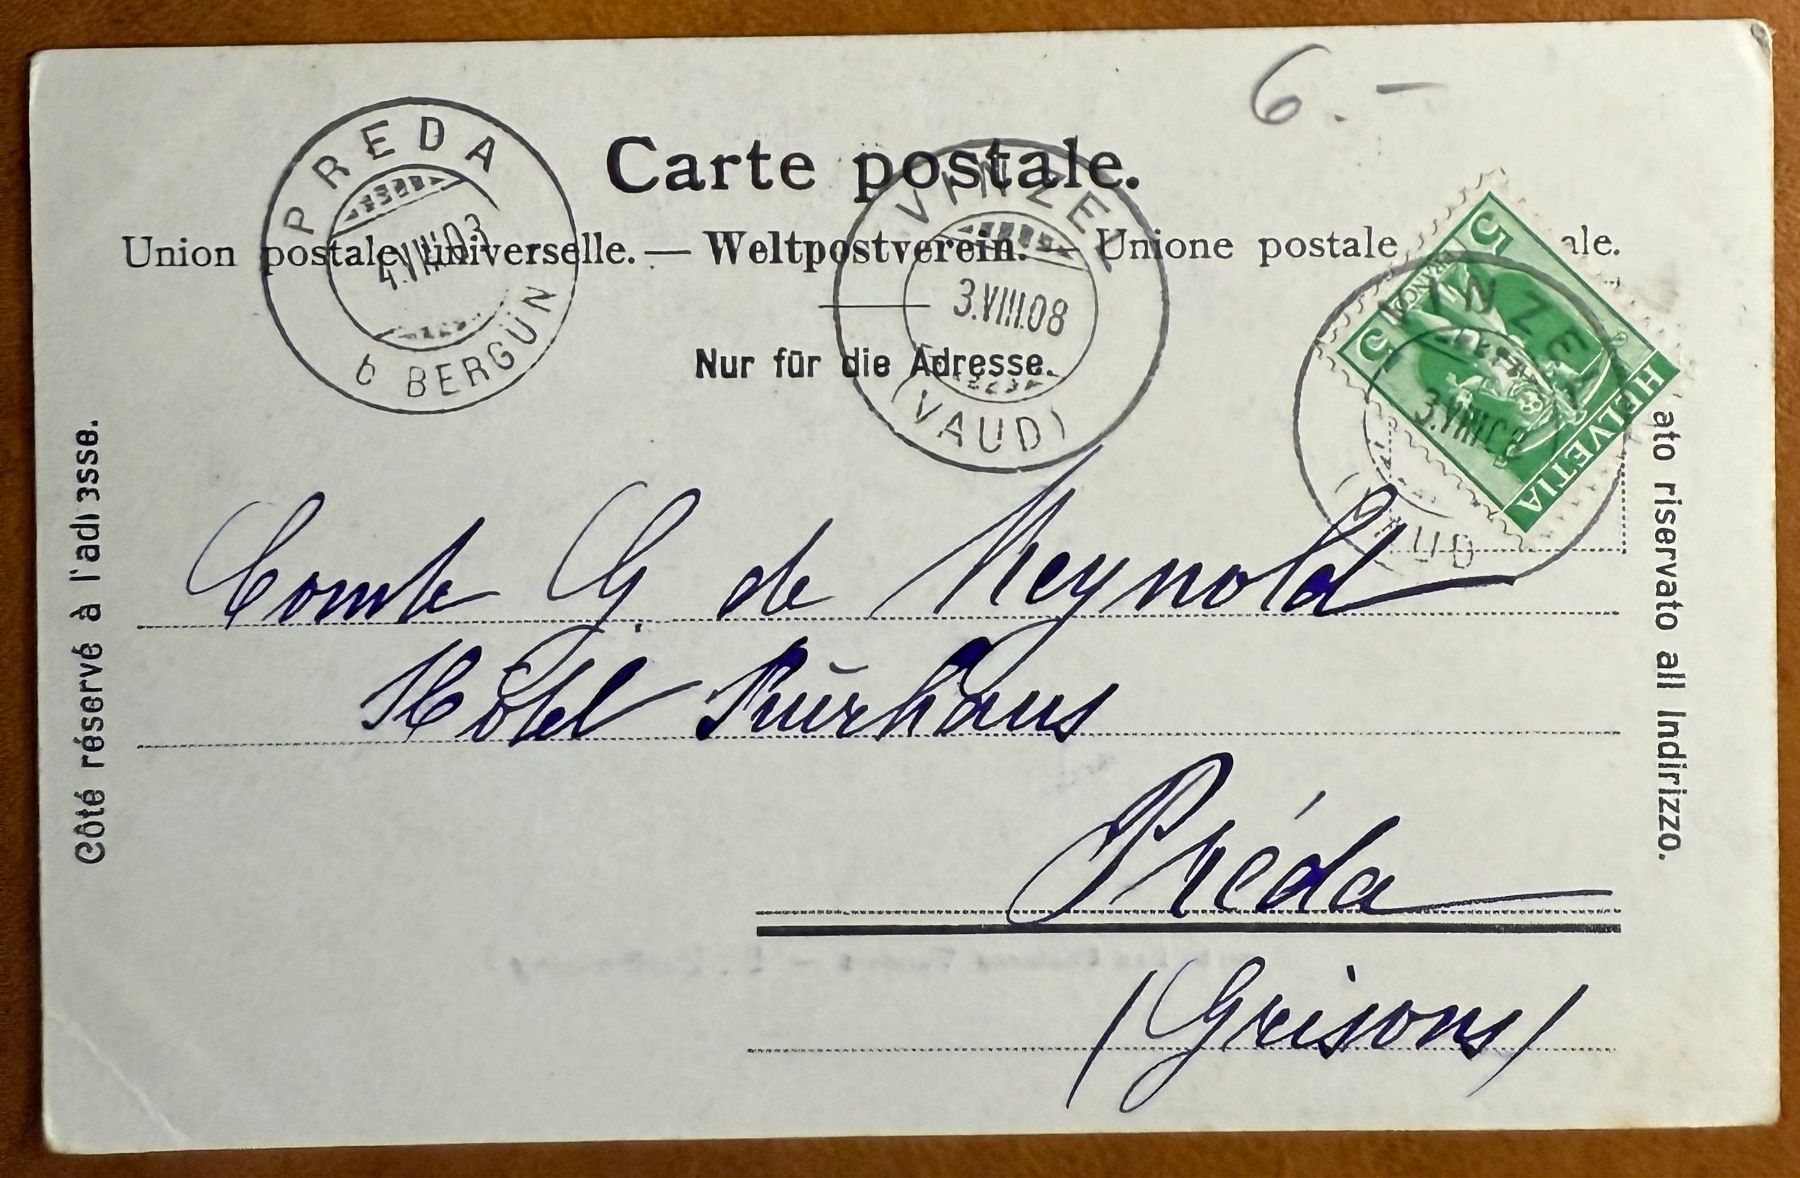 6.-
Carte postale.
Union postale universelle. — Weltpostverein. — Unione postale ale.
Nur für die Adresse.
PREDA
4.VIII.03
b BERGÜN
VINZEL
3.VIII.08
(VAUD)
5 5
FRANCO
HELVETIA
VINZEL
3.VIII.08
AUD
Côté réservé à l'adresse.
ato riservato all Indirizzo.
Comte G. de Reynold
Hôtel Kŭrhaus
Préda
(Grisons)